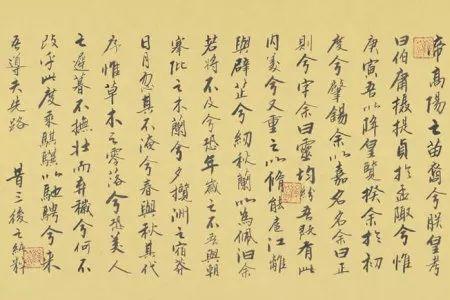 帝高陽之苗裔兮朕皇考
曰伯庸攝提貞於孟陬兮惟
庚寅吾以降皇覽揆余於初
度兮肇錫余以嘉名名余曰正
則兮字余曰靈均紛吾既有此
内美兮又重之以脩能扈江離
與辟芷兮紉秋蘭以為佩汩余
若將不及兮恐年歲之不吾與朝
搴阰之木蘭兮夕攬洲之宿莽
日月忽其不淹兮春與秋其代
序惟草木之零落兮恐美人
之遲暮不撫壯而棄穢兮何不
改乎此度乘騏驥以馳騁兮來
吾導夫先路 昔三後之純粹